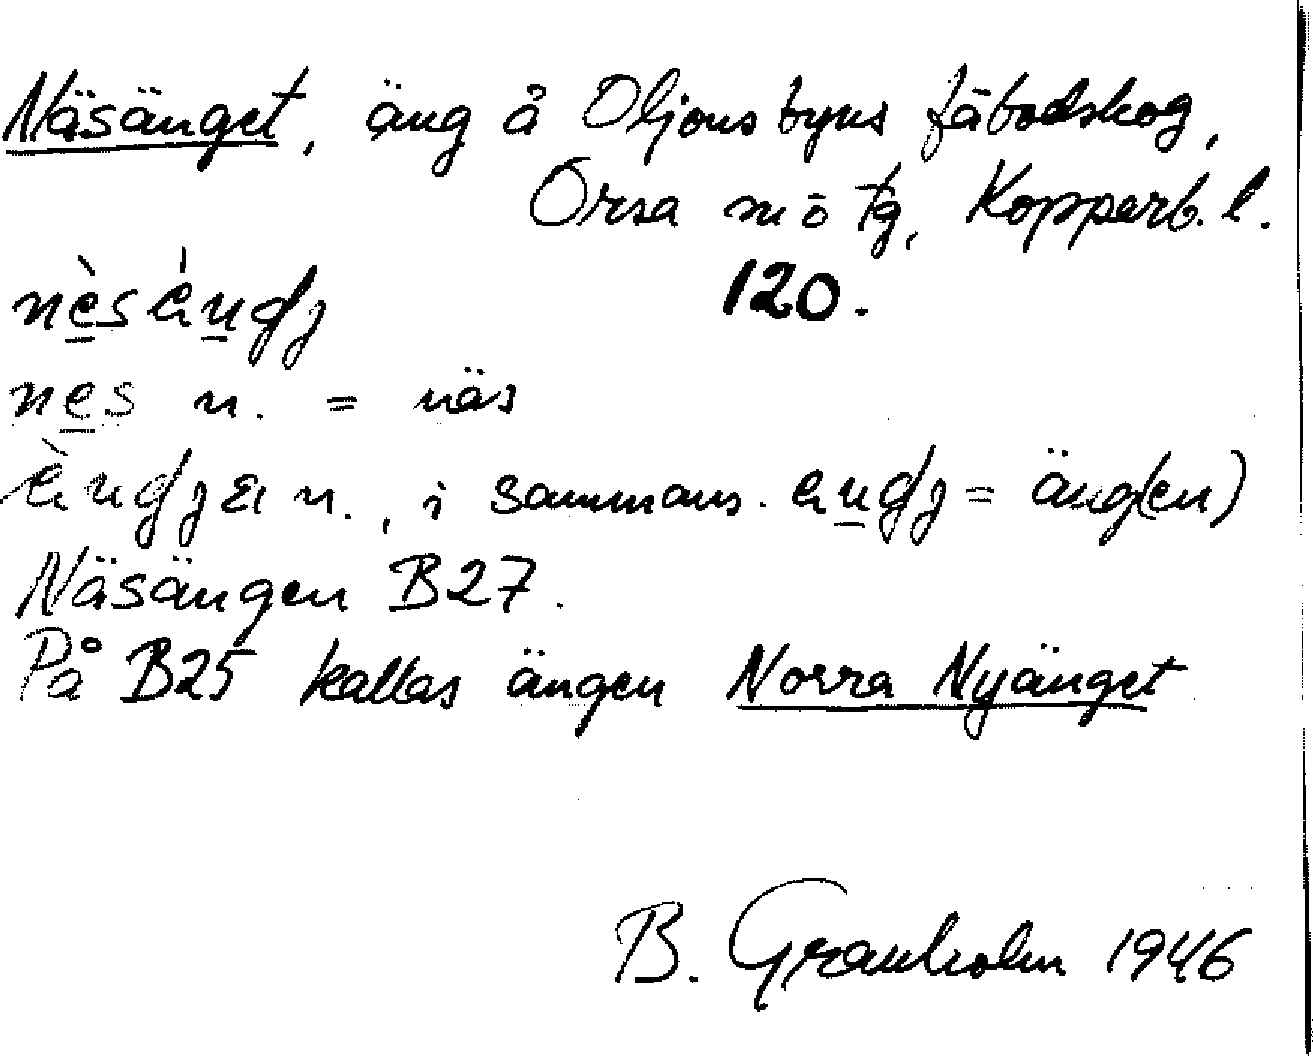 Näsänget, äng å Oljonsbyns fäbodskog,
Orsa sn o tg, Kopparb. l.
nèsèndj 120.
nes n. = näs
n., i sammans. endj = äng(en)
Näsängen B27.
På B25 kallas ängen Norra Nyänget
B. Granholm 1946